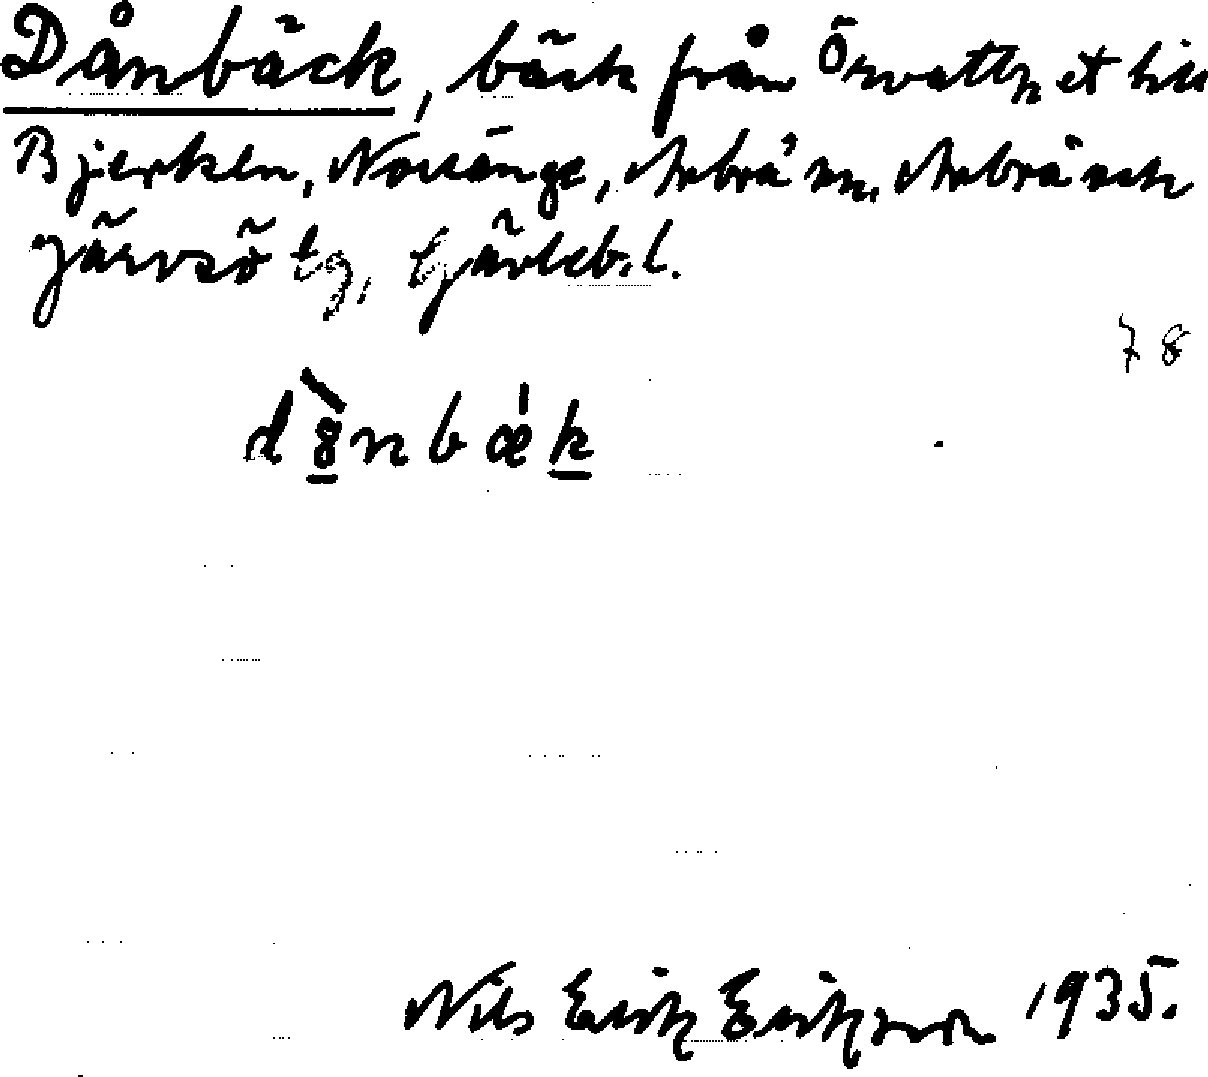 Dånbäck, bäck från Örvattnet till
Bjerken, Norränge, Arbrå sn, Arbrå och
Järvsö tg, Gävleb. l.
78
Nils Erik Eriksson 1935.